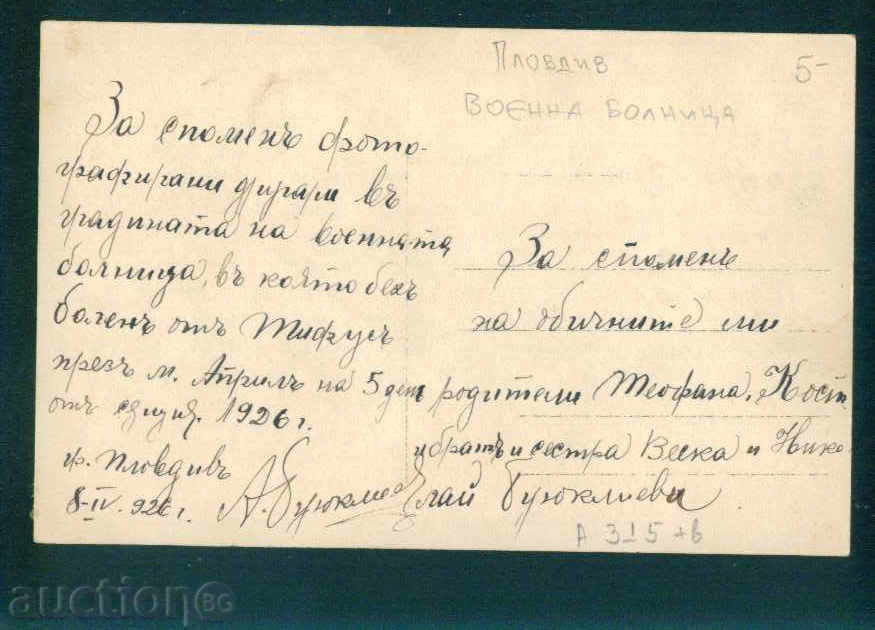 Пловдив
5-
Военна болница
За споменъ фото-
графирани въ
градината на военната
болница, въ която бехъ
боленъ отъ Тифусъ
презъ м. Априлъ на 5 ден
отъ 1926 г.
гр. Пловдивъ
8-IV. 926 г. А. Буюклиев
За споменъ
на обичните ми
родители Теофана, Кост
и братъ и сестра Веска и Нико-
лай Буюклиеви
А 315 +в
auction BG